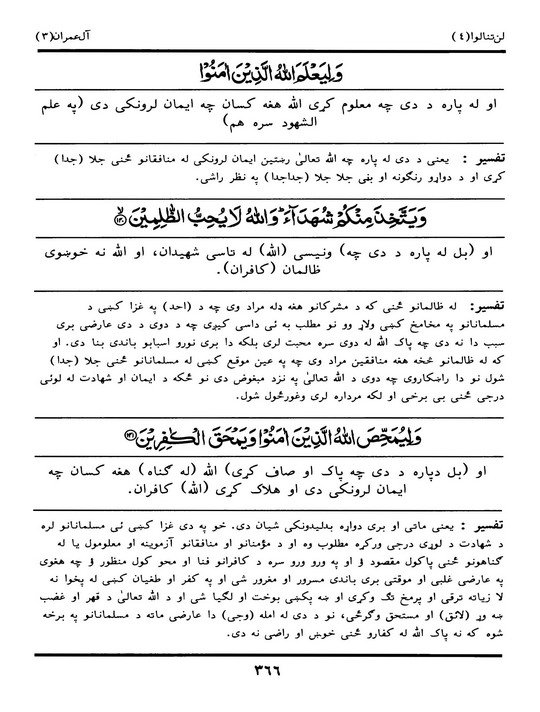 لن تنالوا(٤) آل عمران(٣)
وَلِيَعْلَمَ اللّٰهُ الَّذِيْنَ اٰمَنُوْا
او له پاره د دې چه معلوم کړی الله هغه کسان چه ایمان لرونکی دی (په علم
الشهود سره هم)
تفسیر : یعنی د دی له پاره چه الله تعالیٰ رښتین ایمان لرونکی له منافقانو څنی جلا (جدا)
کړی او د دواړو رنگونه او بڼی جلا جلا (جداجدا) په نظر راشی.
وَيَتَّخِذَ مِنْكُمْ شُهَدَآءَ ؕ وَاللّٰهُ لَا يُحِبُّ الظّٰلِمِيْنَ ۙ﴿۱۴۰﴾
او (بل له پاره د دی چه) ونیسی (الله) له تاسی شهیدان، او الله نه خوښوی
ظالمان (کافران).
تفسیر: له ظالمانو څنی که د مشرکانو هغه ډله مراد وی چه د (احد) په غزا کښی د
مسلمانانو په مخامخ کښی ولاړ وو نو مطلب به ئی داسی کیږی چه د دوی د دی عارضی بری
سبب دا نه دی چه پاک الله له دوی سره محبت لری بلکه دا بری نورو اسبابو باندی بنا دی. او
که له ظالمانو څخه هغه منافقین مراد وی چه په عین موقع کښی له مسلمانانو څنی جلا (جدا)
شول نو دا راښکاروی چه دوی د الله تعالیٰ په نزد مبغوض دی نو ځکه د ایمان او شهادت له لوئی
درجی څنی بی برخی او لکه مرداره لری وغورځول شول.
وَلِيُمَحِّصَ اللّٰهُ الَّذِيْنَ اٰمَنُوْا وَيَمْحَقَ الْكٰفِرِيْنَ ﴿۱۴۱﴾
او (بل دپاره د دی چه پاک او صاف کړی) الله (له ګناه) هغه کسان چه
ایمان لرونکی دی او هلاک کړی (الله) کافران.
تفسیر : یعنی ماتی او بری دواړه بدلیدونکی شیان دی. خو په دی غزا کښی ئی مسلمانانو لره
د شهادت د لوړی درجی ورکړه مطلوب وه او د مؤمنانو او منافقانو آزموینه او معلومول یا له
ګناهونو څنی پاکول مقصود ؤ او په ورو ورو سره د کافرانو فنا او محو کول منظور ؤ چه هغوی
په عارضی غلبی او موقتی بری باندی مسرور او مغرور شی او په کفر او طغیان کښی له پخوا نه
لا زیاته ترقی او پرمخ تګ وکړی او ښه پکښی بوخت او لګیا شی او د الله تعالیٰ د قهر او غضب
ښه وړ (لائق) او مستحق وګرځی، نو د دی له امله (وجی) دا عارضی ماته د مسلمانانو په برخه
شوه که نه پاک الله له کفارو څنی خوښ او راضی نه دی.
٣٦٦